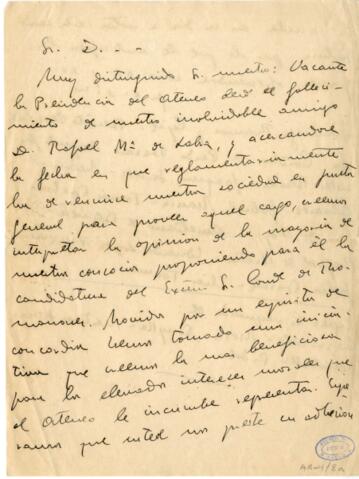 Sr. D. - - -
Muy distinguido Sr. nuestro: Vacante
la Presidencia del Ateneo desde el falleci-
miento de nuestro inolvidable amigo
D. Rafael Mª de Labra, y acercandose
la fecha en que reglamentariamente
ha de reunirse nuestra sociedad en junta
general para proveer aquel cargo, creemos
interpretar la opinion de la mayoria de
nuestros consocios proponiendo para él la
candidatura del Excmo Sr. Conde de Ro-
manones. Movidos por un espiritu de
concordia hemos tomado una inicia-
tiva que creemos la mas beneficiosa
para los elevados intereses morales que
el Ateneo le incumbe representar. Espe-
ramos que usted nos preste su adhesion